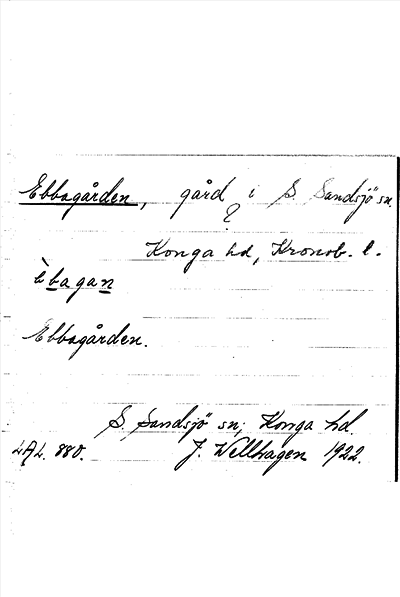 Ebbagården, gård i S. Sandsjö sn.
?
Konga hd, Kronob. l.
èbagan
Ebbagården.
S. Sandsjö sn, Konga hd.
LAL. 880. J. Wellhagen 1922.